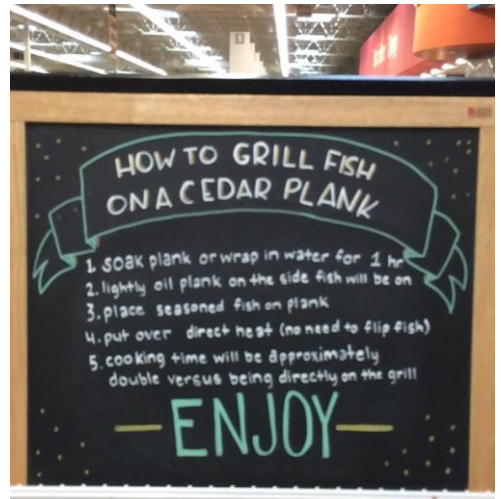 HOW TO GRILL FISH
ON A CEDAR PLANK
1. SOAK plank or wrap in water for 1 hr
2. lightly oil plank on the side fish will be on
3. place seasoned fish on plank
4. put over direct heat (no need to flip fish)
5. cooking time will be approximately
double versus being directly on the grill
ENJOY